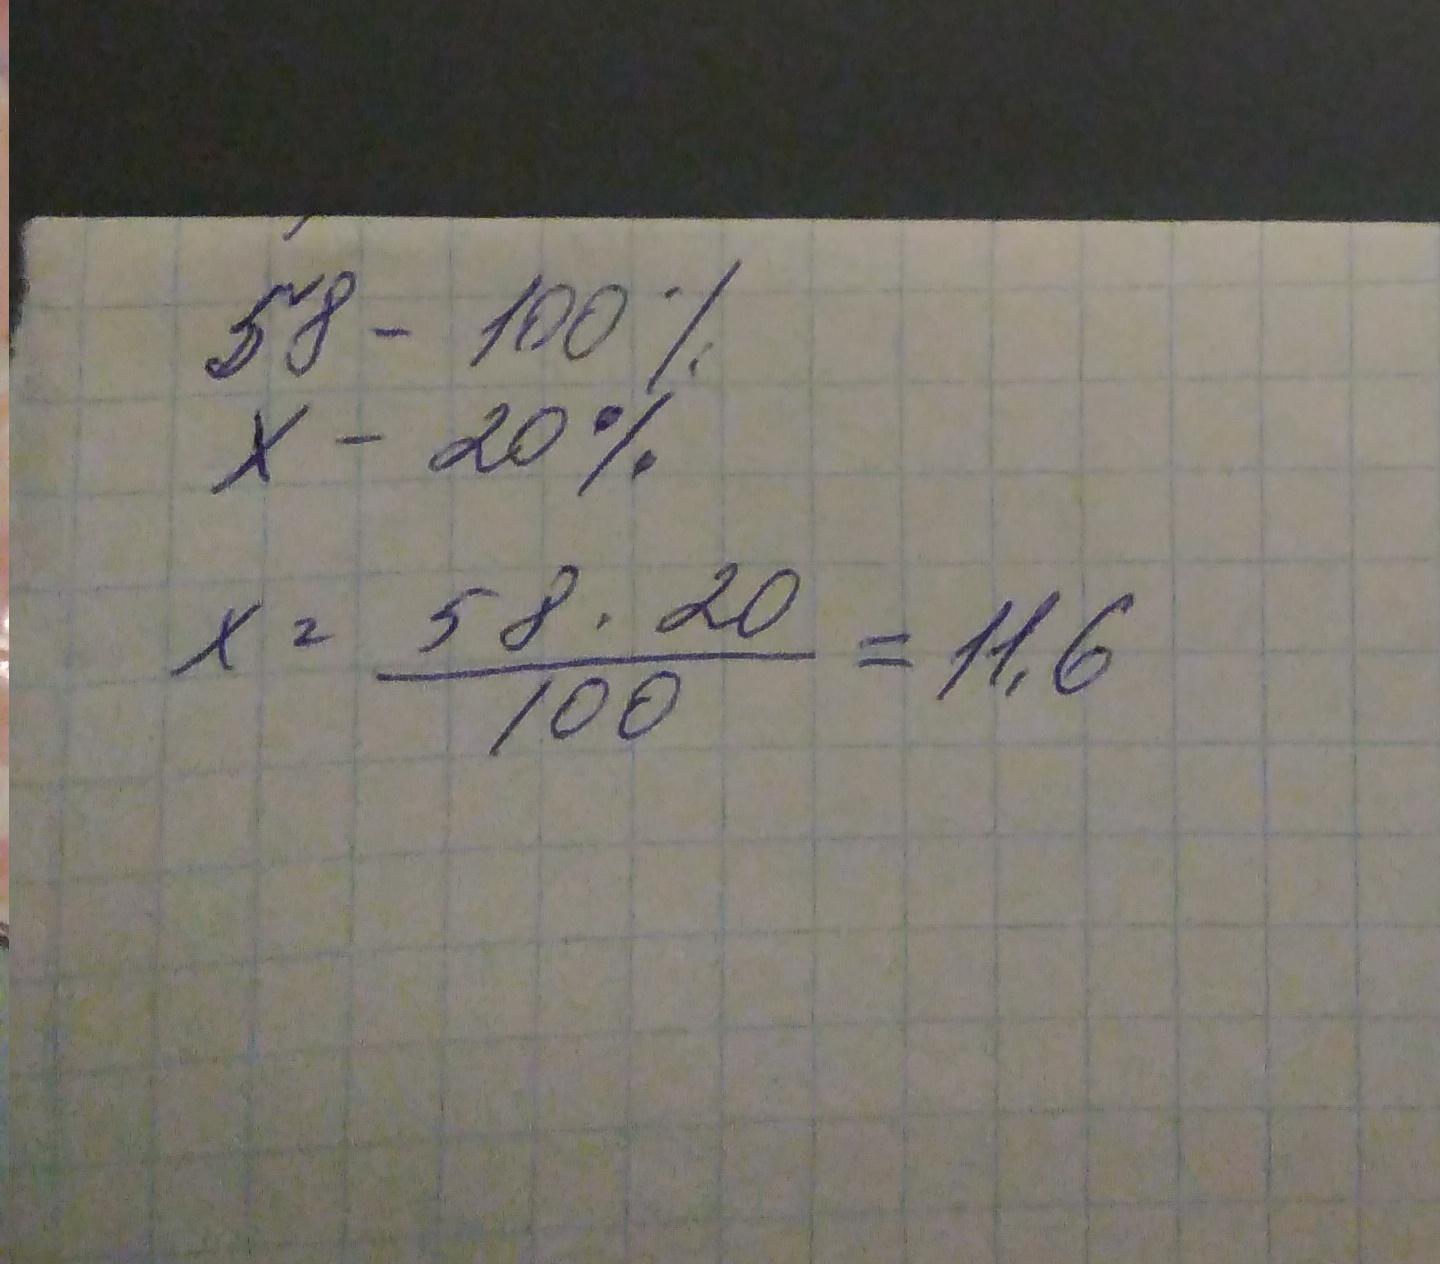 58 - 100 %
x - 20 %
x = 58 · 20 / 100 = 11,6